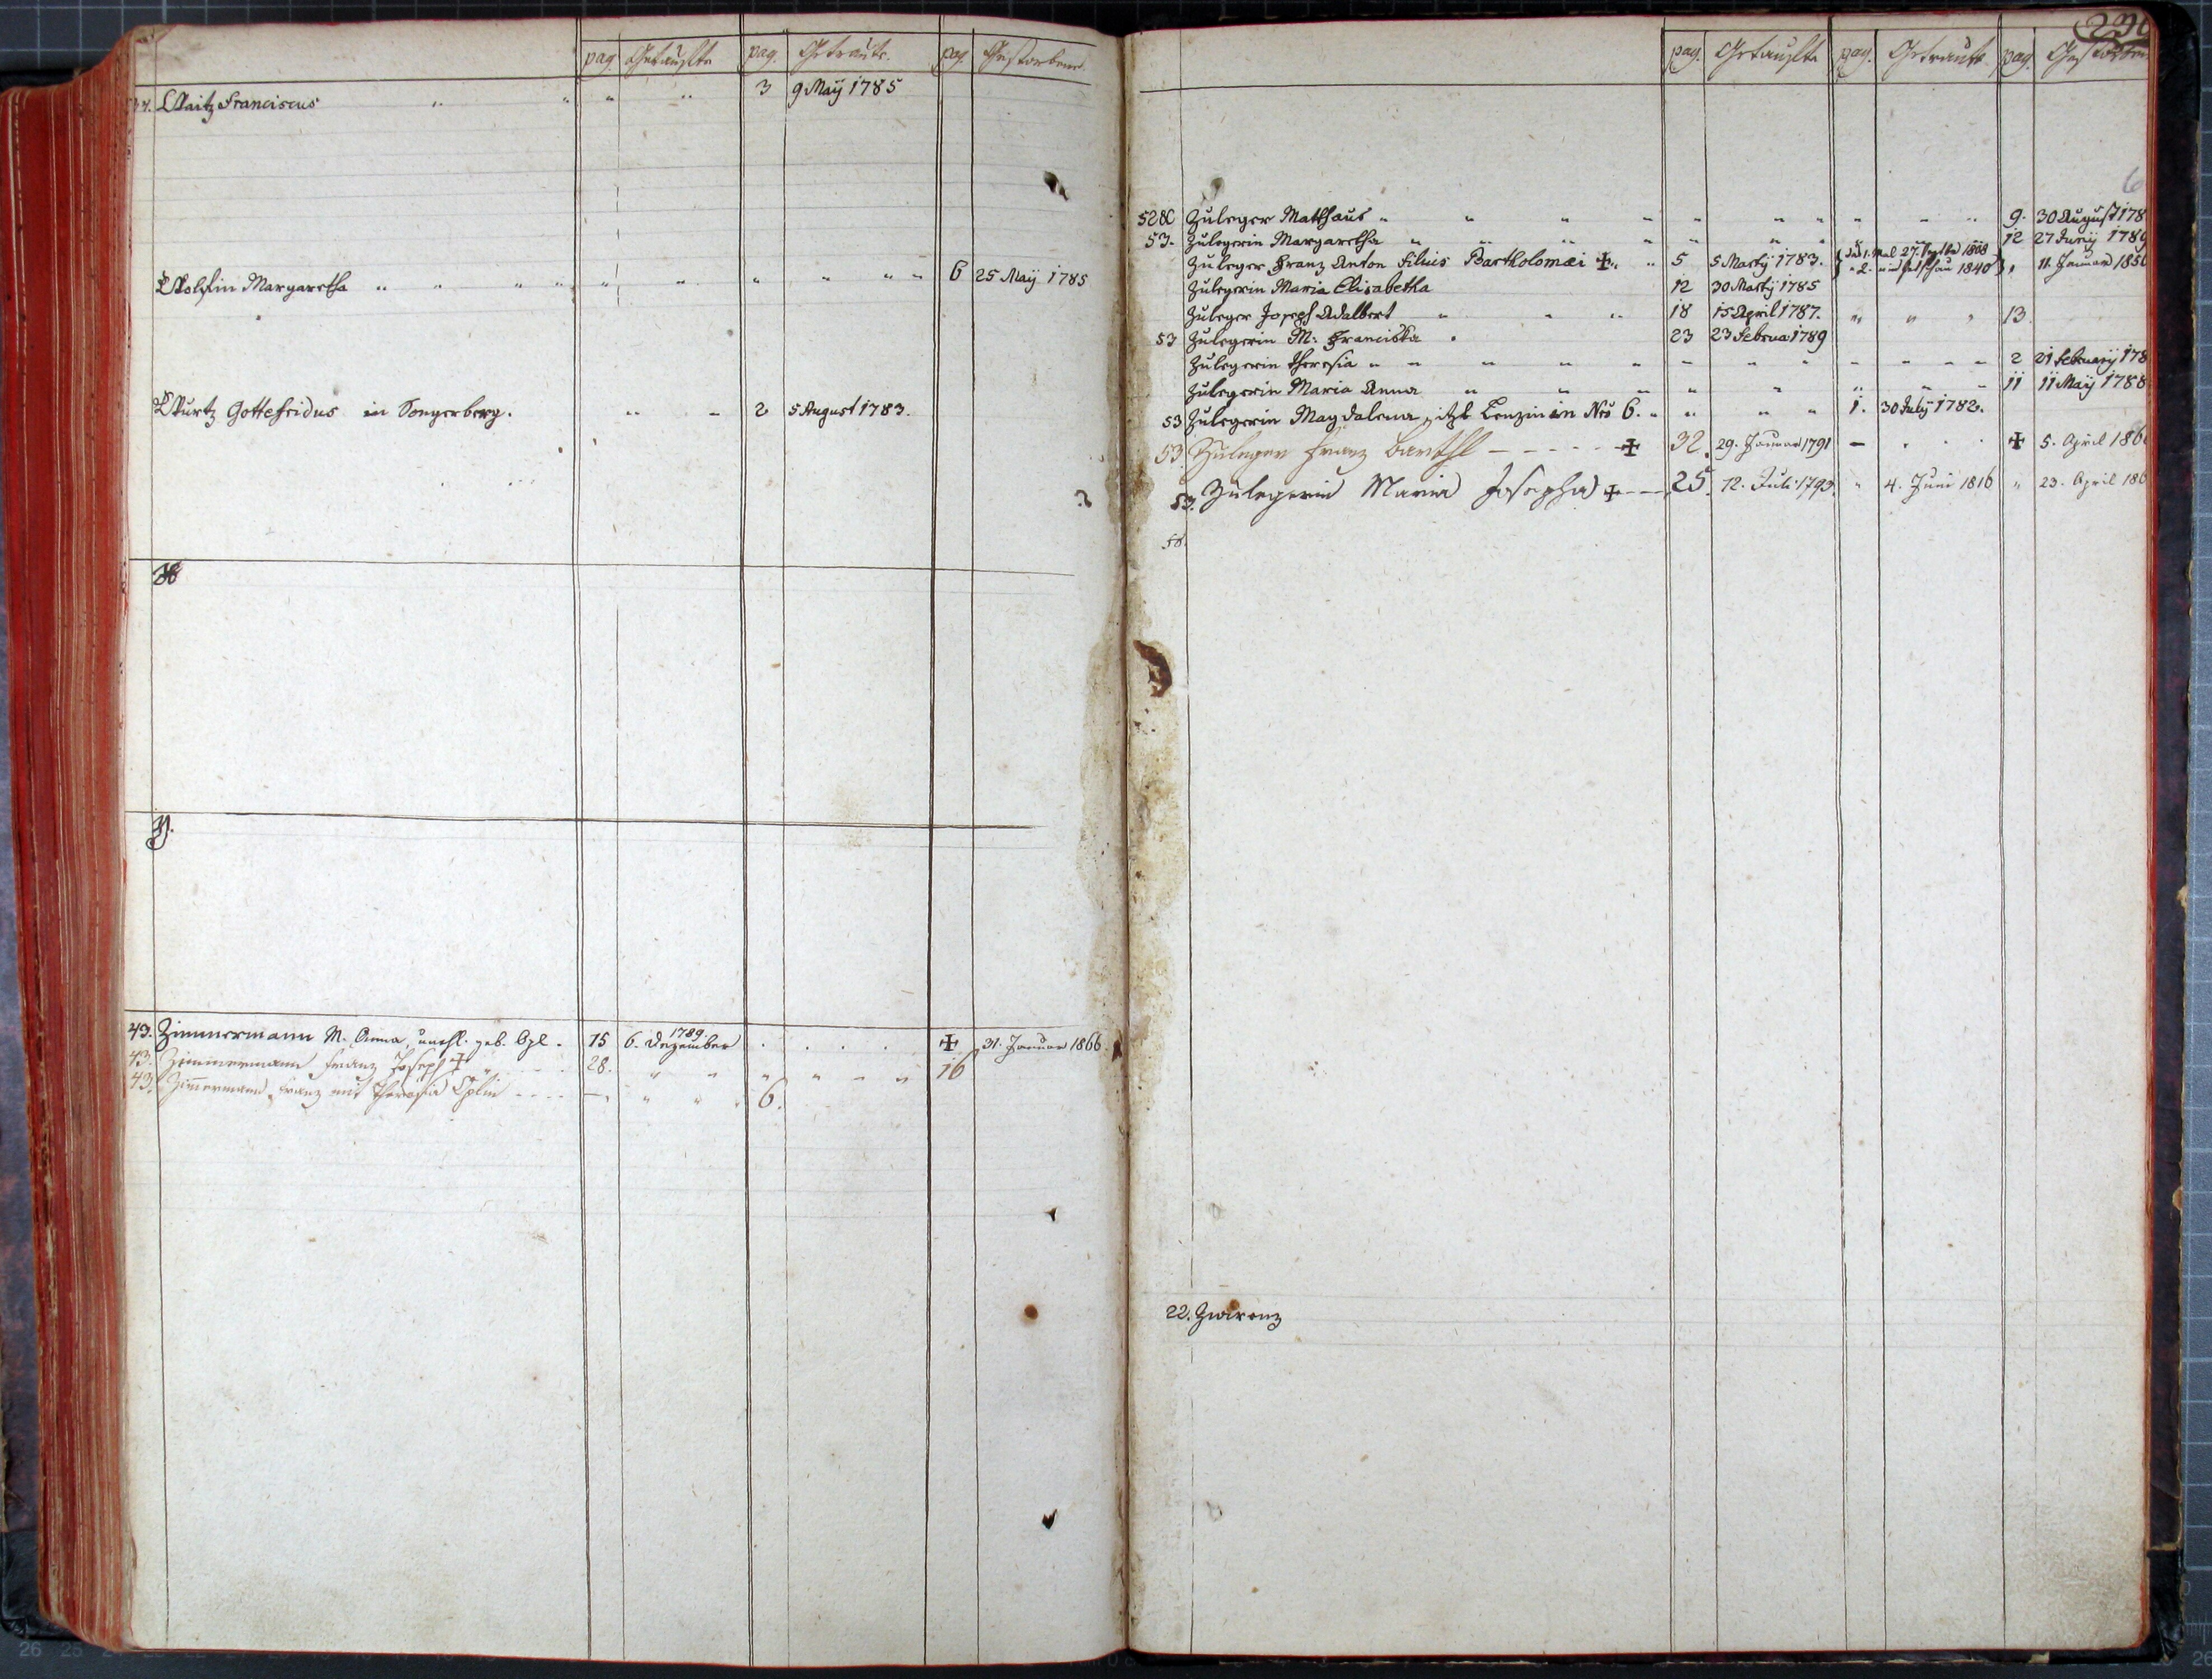 pag. Getaufte pag. Getraute. pag. Gestorbene.
Waitz Franciscus " " " " 3 9 Maÿ 1785
Wolfin Margaretha " " " " " " " " " " 6 25 Maÿ 1785
Wurtz Gottefridus in Songerberg. " " 2 5 August 1783.
X
Y.
43. Zimmermann M. Anna, unehl. geb. Opl. 15 6. Dezember 1789. . . . . ✠ 31. Januar 1866.
43. Zimmermann Franz Joseph ✠ 28. " " " " " " 16
43. Zimmermann Franz mit Theresia Oplin - - - - — " " 6.
pag. Getaufte pag. Getraute pag. Gestorbene
Zuleger Matthaus " " " " " " " " " " 9. 30 August 178
53. Zulegerin Margaretha " " " " " " " 12 27 Junÿ 1789
Zuleger Franz Anton Filius Bartholomæi ✠ " " 5 5 Martÿ 1783. 1. Mal 27. 1808
" 2. 1840 " 11. Januar 185
Zulegerin Maria Elisabetha 12 30 Martÿ 1785
Zuleger Joseph Adalbert " " " 18 15 April 1787. " " " 13
53 Zulegerin M: Franciska . 23 23 Februa: 1789
Zulegerin Theresia " " " " " " " " " " " " 2 21 Februarÿ 178
Zulegerin Maria Anna " " " " " " " " 11 11 Maÿ 1788
53 Zulegerin Magdalena, itzt Lenzin in Nro 6. " " " " 1. 30 Julÿ 1782.
53 Zuleger Franz Barthl - - - - - ✠ 32. 29. Januar 1791 — . . . ✠ 5. April 186
53. Zulegerin Maria Josepha ✠ - - 25. 12. Juli 1793. " 4. Juni 1816 " 23. April 186
58.
22. Gwirenz